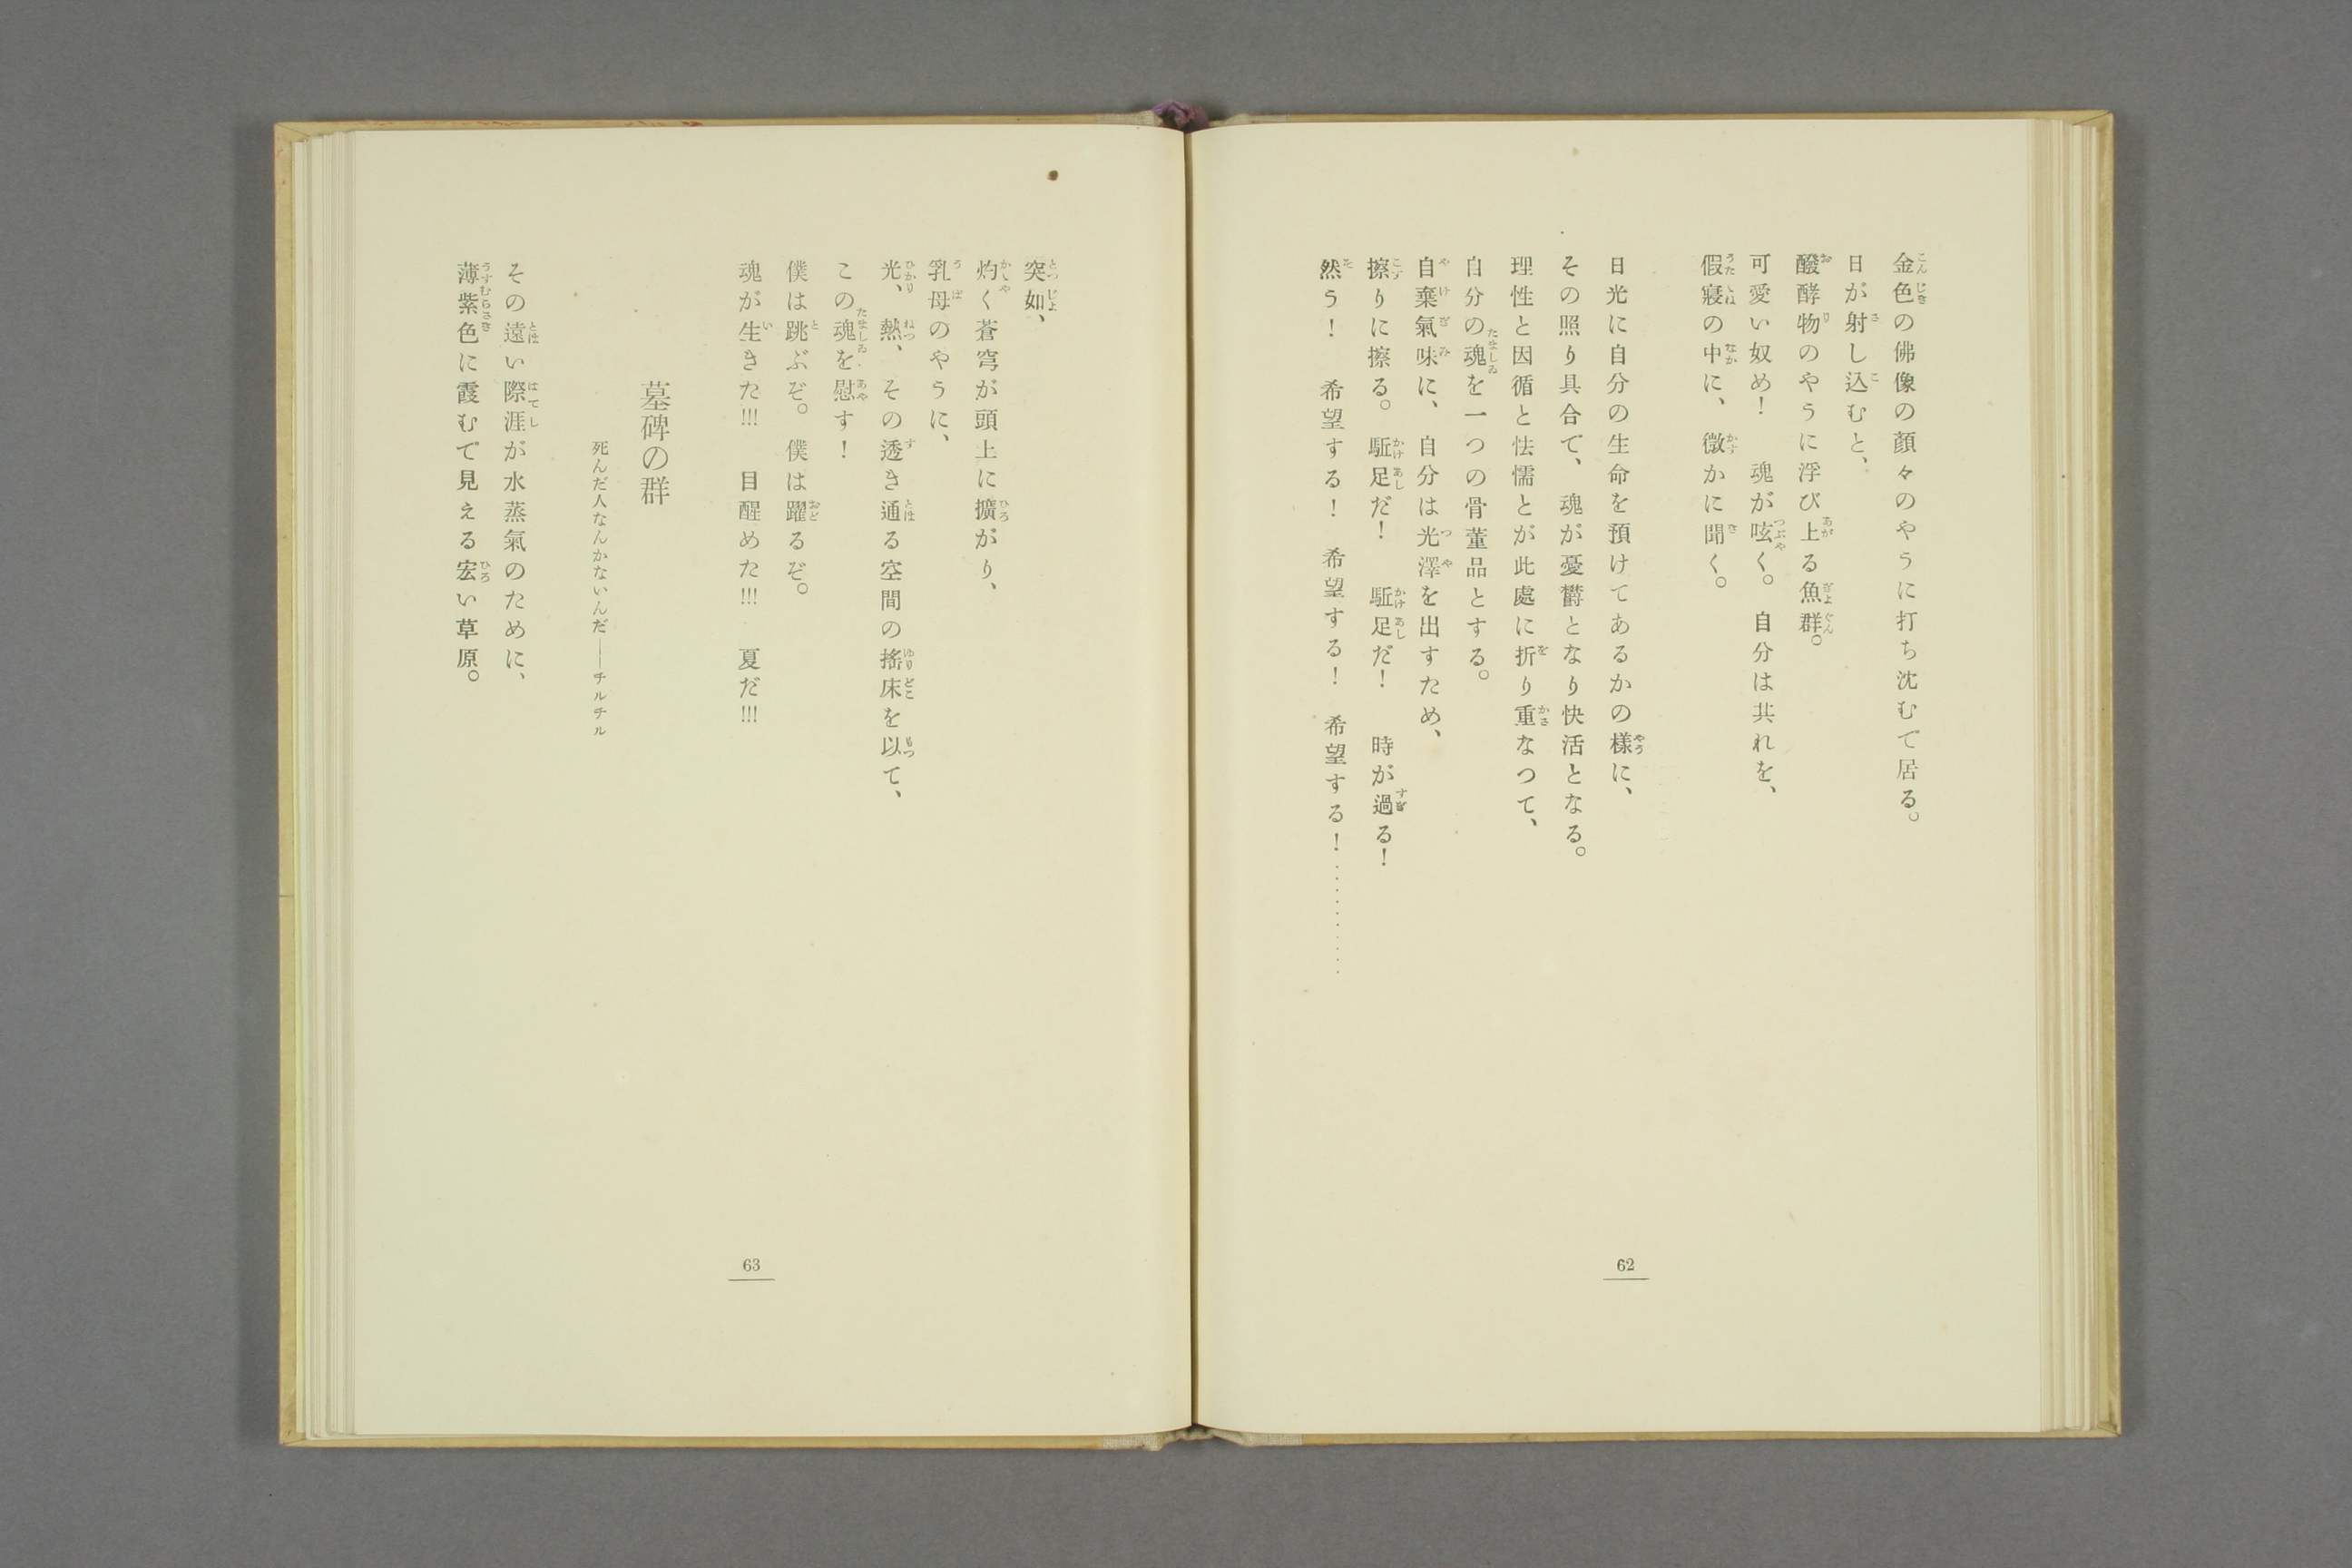 金色の佛像の顏々のやうに打ち沈むで居る。
日が射し込むと、
醱酵物のやうに浮び上る魚群。
可愛い奴め！　魂が呟く。自分は其れを、
假寢の中に、微かに聞く。
日光に自分の生命を預けてあるかの樣に、
その照り具合で、魂が憂欝となり快活となる。
理性と因循と怯懦とが此處に折り重なつて、
自分の魂を一つの骨董品とする。
自棄氣味に、自分は光澤を出すため、
擦りに擦る。駈足だ！　駈足だ！　時が過る！
然う！　希望する！　希望する！　希望する！…………
62
突如、
灼く蒼穹が頭上に擴がり、
乳母のやうに、
光、熱、その透き通る空間の搖床を以て、
この魂を慰す！
僕は跳ぶぞ。僕は躍るぞ。
魂が生きた!!!　目醒めた!!!　夏だ!!!
墓碑の群
死んだ人なんかないんだ――チルチル
その遠い際涯が水蒸氣のために、
薄紫色に霞むで見える宏い草原。
63